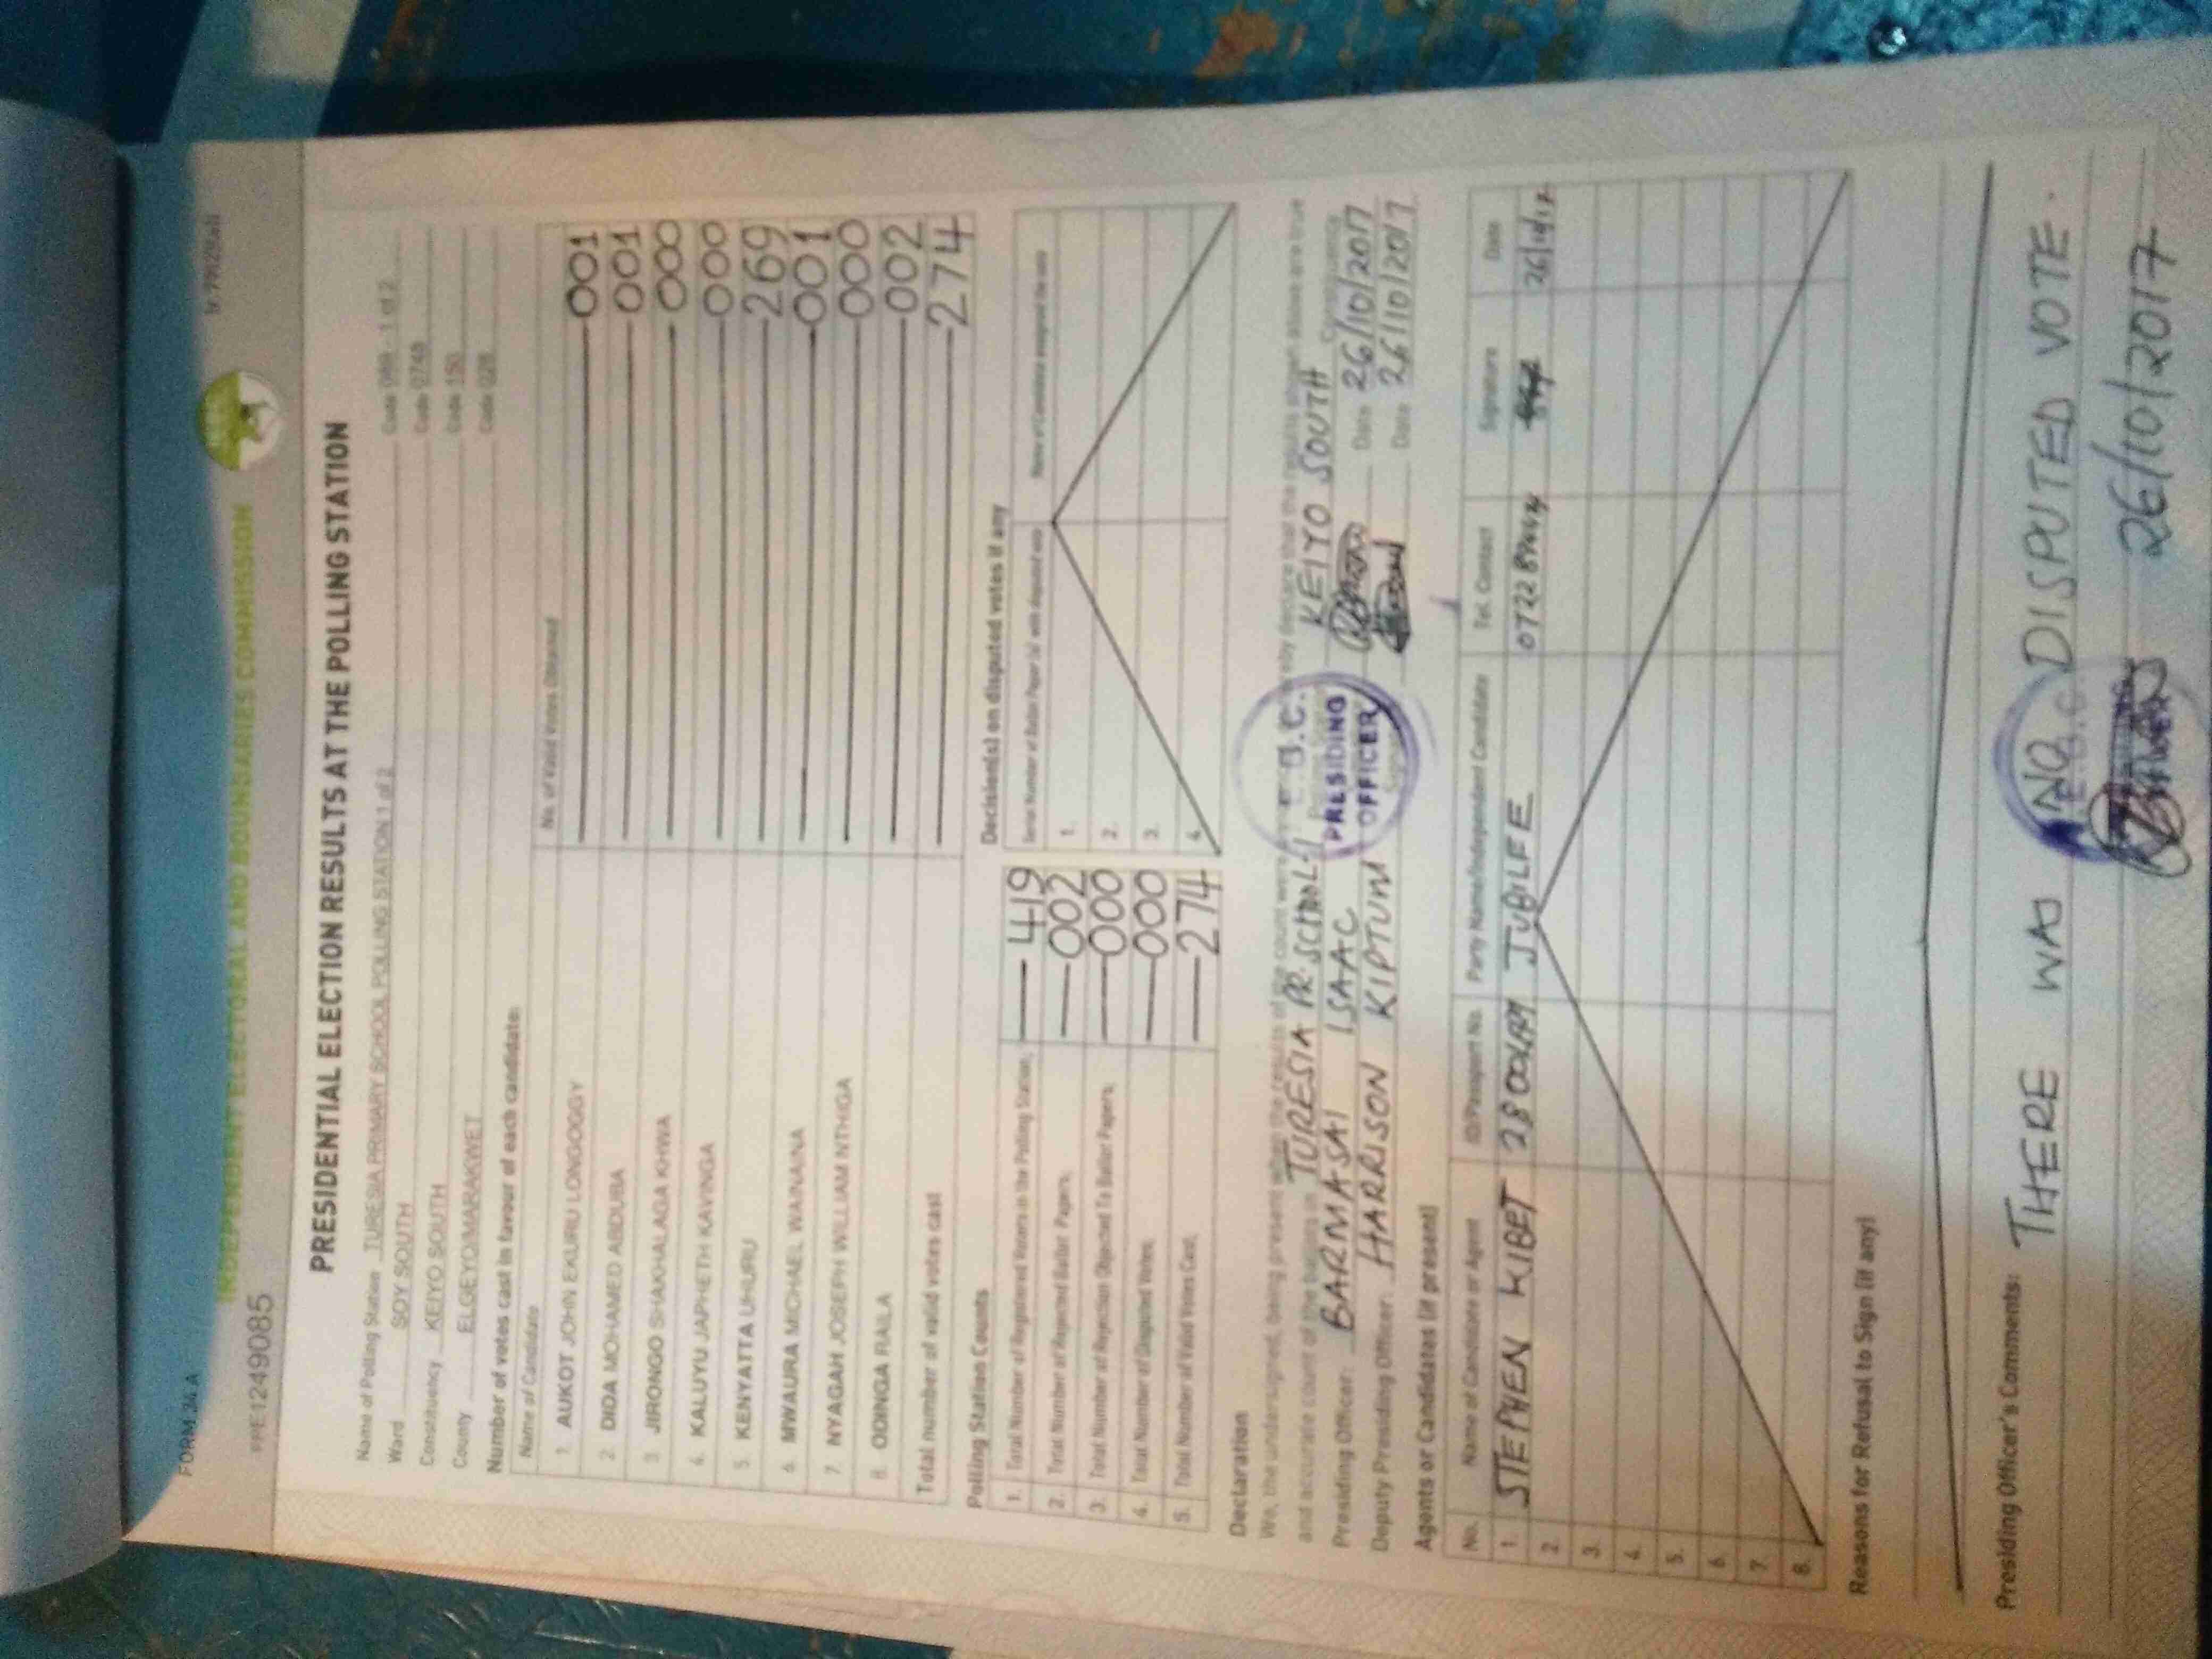 FORM 34 A
PPE1249085
INDEPENDENT ELECTORAL AND BOUNDARIES COMMISSION
PRESIDENTIAL ELECTION RESULTS AT THE POLLING STATION
Name of Polling Station TURESIA PRIMARY SCHOOL POLLING STATION 1 of 2 Code 088 - 1 of 2
Ward SOY SOUTH Code 0748
Constituency KEIYO SOUTH Code 150
County ELGEYO/MARAKWET Code 028
Number of votes cast in favour of each candidate:
Name of Candidate No. of Valid Votes Obtained
1. AUKOT JOHN EKURU LONGOGGY 001
2. DIDA MOHAMED ABDUBA 001
3. JIRONGO SHAKHALAGA KHWA 000
4. KALUYU JAPHETH KAVINGA 000
5. KENYATTA UHURU 269
6. MWAURA MICHAEL WAINAINA 001
7. NYAGAH JOSEPH WILLIAM NTHIGA 000
8. ODINGA RAILA 002
Total number of valid votes cast 274
Polling Station Counts
1. Total Number of Registered Voters in the Polling Station: 419
2. Total Number of Rejected Ballot Papers: 002
3. Total Number of Rejection Objected To Ballot Papers: 000
4. Total Number of Disputed Votes: 000
5. Total Number of Valid Votes Cast: 274
Decision(s) on disputed votes if any
Serial Number of Ballot Paper (s) with disputed vote Name of Candidate assigned the vote
1.
2.
3.
4.
Declaration
We, the undersigned, being present when the results of the count were declare that the results shown above are true
and accurate count of the ballots in TURESIA PR. SCHOOL-1 KEIYO SOUTH Constituency
Presiding Officer: BARMASAI ISAAC Date 26/10/2017
Deputy Presiding Officer: HARRISON KIPTUM Date 26/10/2017
PRESIDING
OFFICER
Agents or Candidates (if present)
No. Name of Candidate or Agent ID/Passport No. Party Name/Independent Candidate Tel. Contact Signature Date
1. STEPHEN KIBET JUBILEE 26/10/17
2.
3.
4.
5.
6.
7.
8.
Reasons for Refusal to Sign (if any)
Presiding Officer's Comments: THERE WAS NO DISPUTED VOTE.
26/10/2017